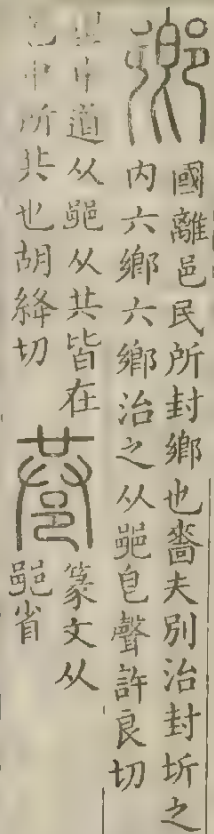 鄉
國離邑民所封鄉也嗇夫別治封圻之
內六鄉六鄉治之从𨛜皀聲許良切
里中道从𨛜从共皆在
邑中所共也胡絳切
巷
篆文从
𨛜省